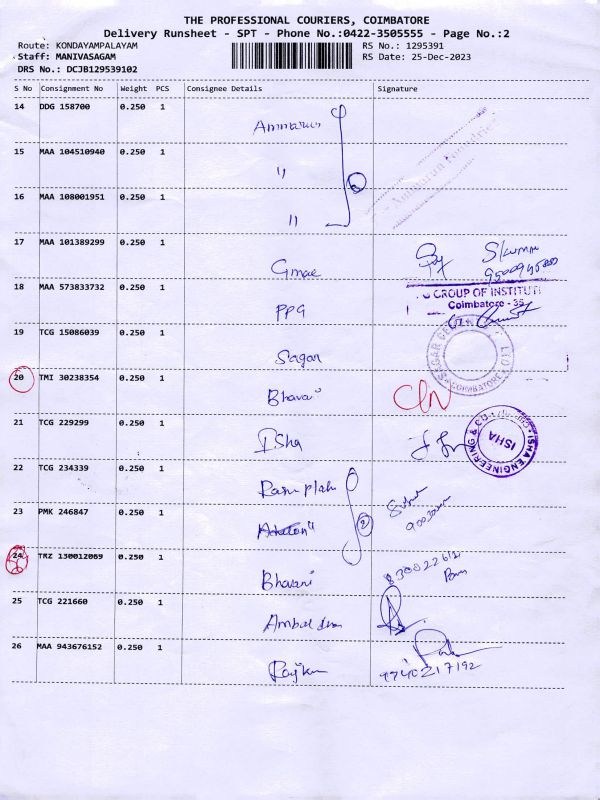 THE PROFESSIONAL COURIERS, COIMBATORE
Delivery Runsheet - SPT - Phone No.:0422-3505555 - Page No.:2
Route: KONDAYAMPALAYAM RS No.: 1295391
Staff: MANIVASAGAM RS Date: 25-Dec-2023
DRS No.: DCJB129539102
S No Consignment No Weight PCS Consignee Details Signature
14 DDG 158700 0.250 1
15 MAA 104510940 0.250 1 "
16 MAA 108001951 0.250 1 "
17 MAA 101389299 0.250 1 Gmae
18 MAA 573833732 0.250 1 PPG
GROUP OF INSTITUTI
Coimbatore - 35
19 TCG 15086039 0.250 1 Sagar
SAGAR COIMBATORE LTD
20 TMI 30238354 0.250 1 Bhavani CLN
21 TCG 229299 0.250 1 Isha
ISHA ENGINEERING & CO
ISHA
22 TCG 234339 0.250 1
23 PMK 246847 0.250 1
24 TRZ 130012069 0.250 1 Bhavani
25 TCG 221660 0.250 1
26 MAA 943676152 0.250 1
9740217192